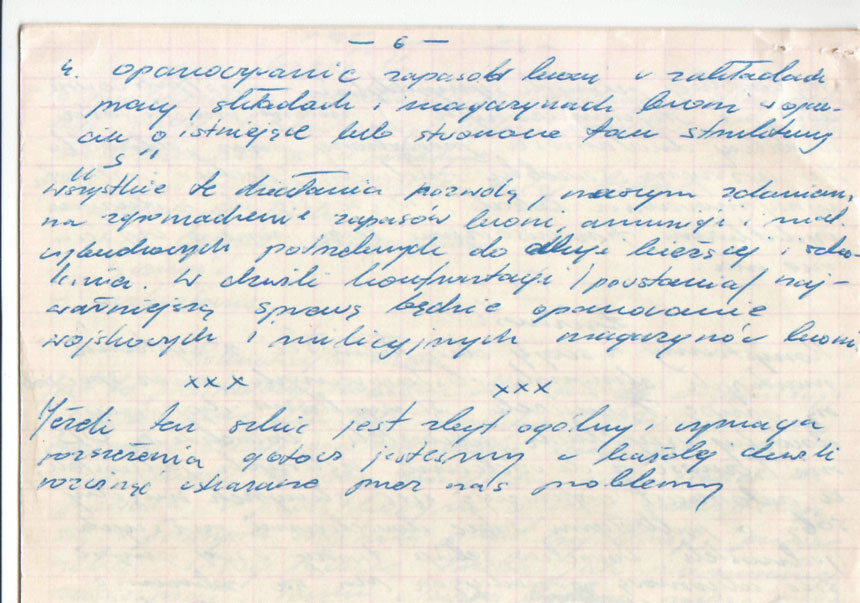 — 6 —
4. opanowywanie zapasów broni w zakładach
pracy, składach i magazynach broni w opar-
ciu o istniejące lub stworzone tam struktury
„S”
wszystkie te działania pozwolą, naszym zdaniem,
na zgromadzenie zapasów broni, amunicji i mat.
wybuchowych potrzebnych do akcji bieżącej i szko-
lenia. W chwili konfrontacji /powstania/ naj-
ważniejszą sprawą będzie opanowanie
wojskowych i milicyjnych magazynów broni.
xxx xxx
Jeżeli ten szkic jest zbyt ogólny i wymaga
rozszerzenia gotowi jesteśmy w każdej chwili
rozwinąć wskazane przez nas problemy